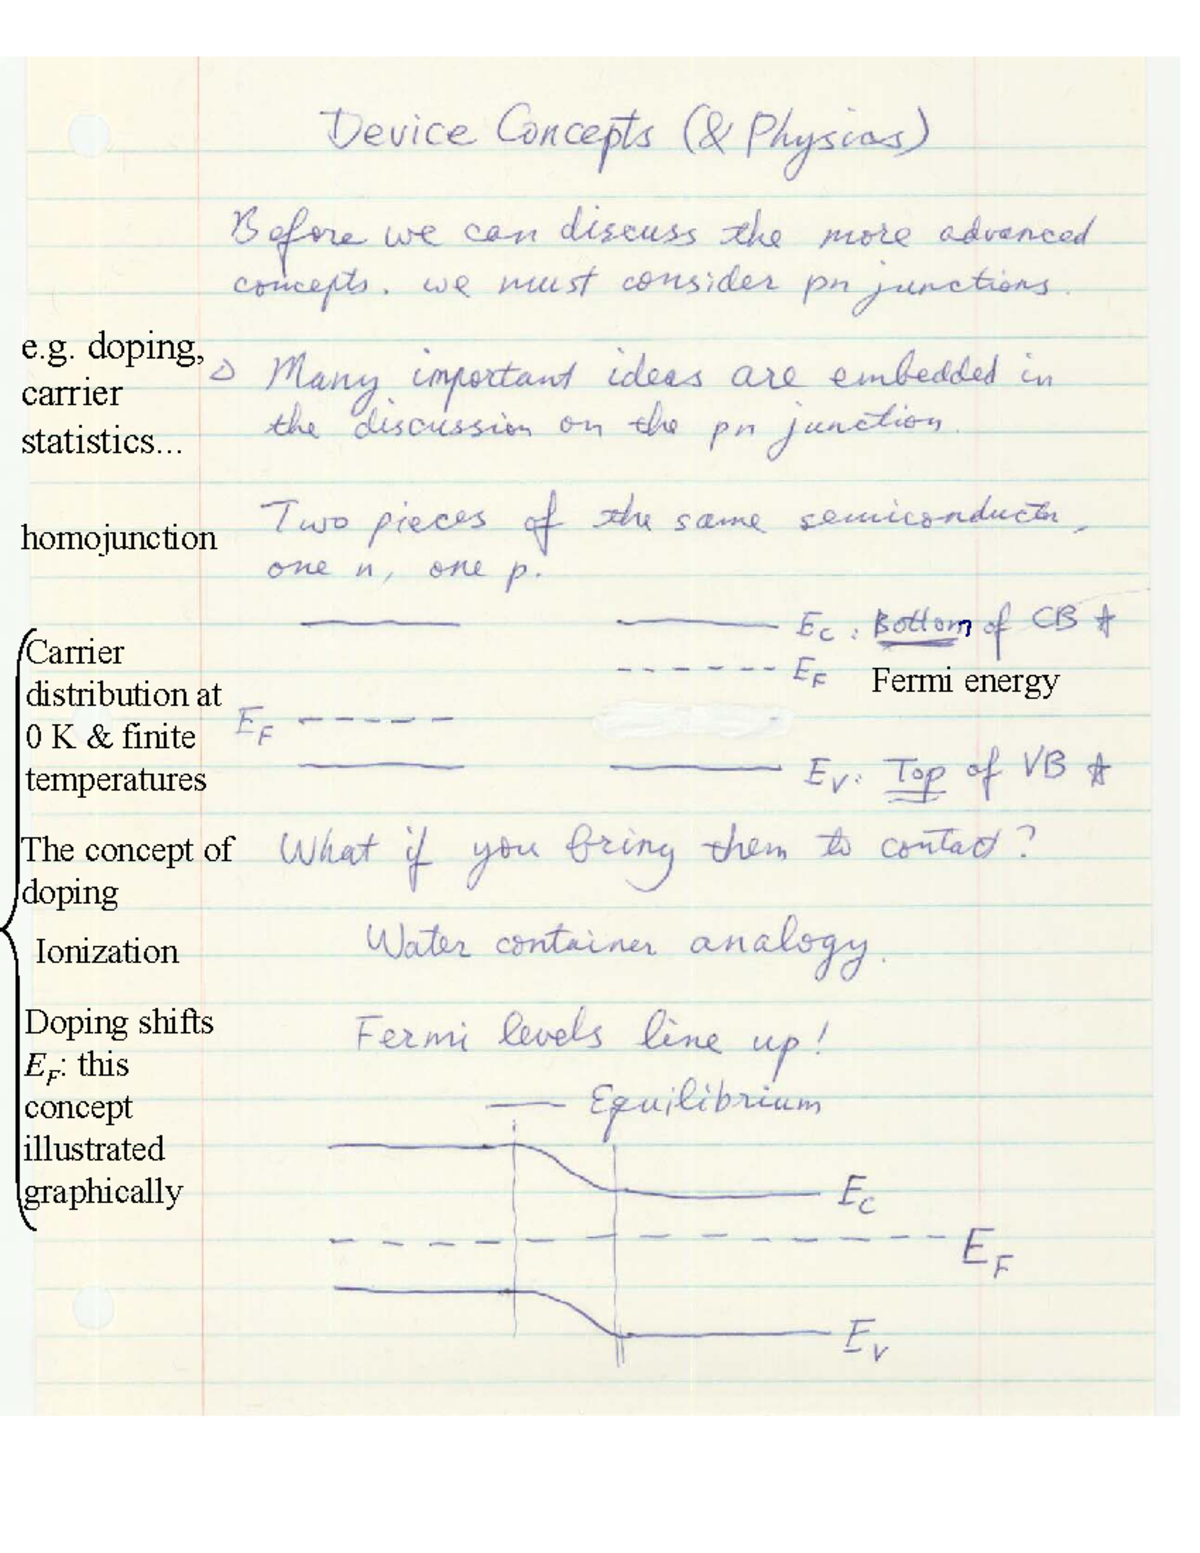 Device Concepts (& Physics)
Before we can discuss the more advanced
concepts. we must consider pn junctions.
e.g. doping,
carrier
statistics...
▷ Many important ideas are embedded in
the discussion on the pn junction.
homojunction
Two pieces of the same semiconductor,
one n, one p.
Ec: Bottom of CB ☆
EF
Fermi energy
EF
Ev: Top of VB ☆
Carrier
distribution at
0 K & finite
temperatures
The concept of
doping
Ionization
Doping shifts
EF: this
concept
illustrated
graphically
What if you bring them to contact?
Water container analogy.
Fermi levels line up!
— Equilibrium
Ec
EF
Ev